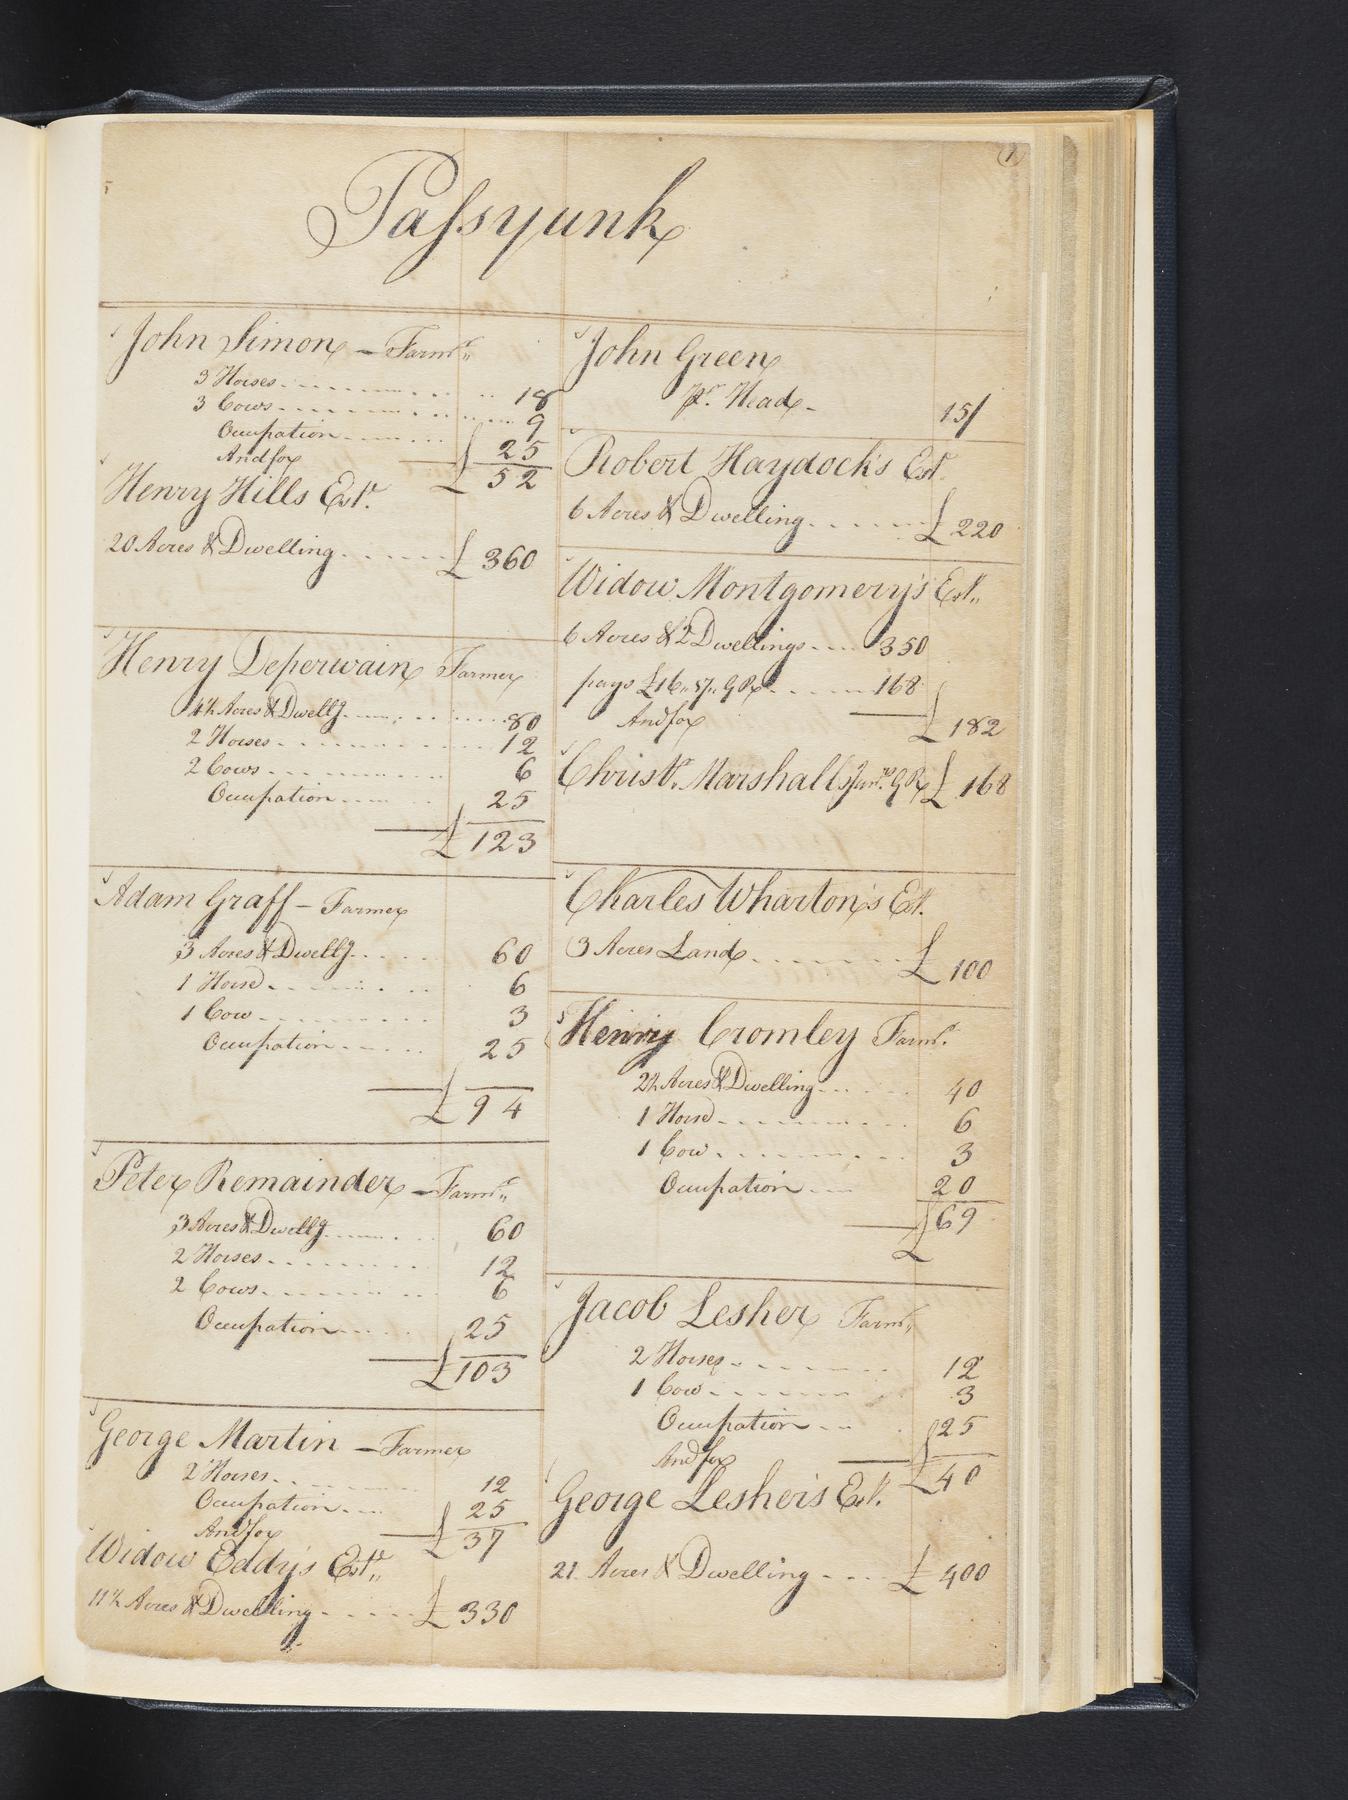 1
Passyunk
John Simon - Farmr
3 Horses 18
3 Cows 9
Occupation 25
And for £ 52
Henry Hills Estt.
20 Acres & Dwelling £ 360
Henry Deperwain Farmer
4½ Acres & Dwellg 80
2 Horses 12
2 Cows 6
Occupation 25
£ 123
Adam Graff - Farmer
3 Acres & Dwellg 60
1 Horse 6
1 Cow 3
Occupation 25
£ 94
Peter Remainder - Farmr
3 Acres & Dwellg 60
2 Horses 12
2 Cows 6
Occupation 25
£ 103
George Martin - Farmer
2 Horses 12
Occupation 25
And for £ 37
Widow Eddy's Estt
11½ Acres & Dwelling £ 330
John Green
Pr. Head - 15/
Robert Haydock's Estt.
6 Acres & Dwelling £ 220
Widow Montgomery's Estt
6 Acres & 2 Dwellings 350
pays £16 " 17 " G Rt 168
And for £ 182
Christr. Marshall's Junrs. G Rt £ 168
Charles Wharton's Estt.
3 Acres Land £ 100
Henry Cromley Farmr.
2½ Acres & Dwelling 40
1 Horse 6
1 Cow 3
Occupation 20
£ 69
Jacob Lesher Farmr
2 Horses 12
1 Cow 3
Occupation 25
And for £ 40
George Lesher's Estt.
21 Acres & Dwelling £ 400